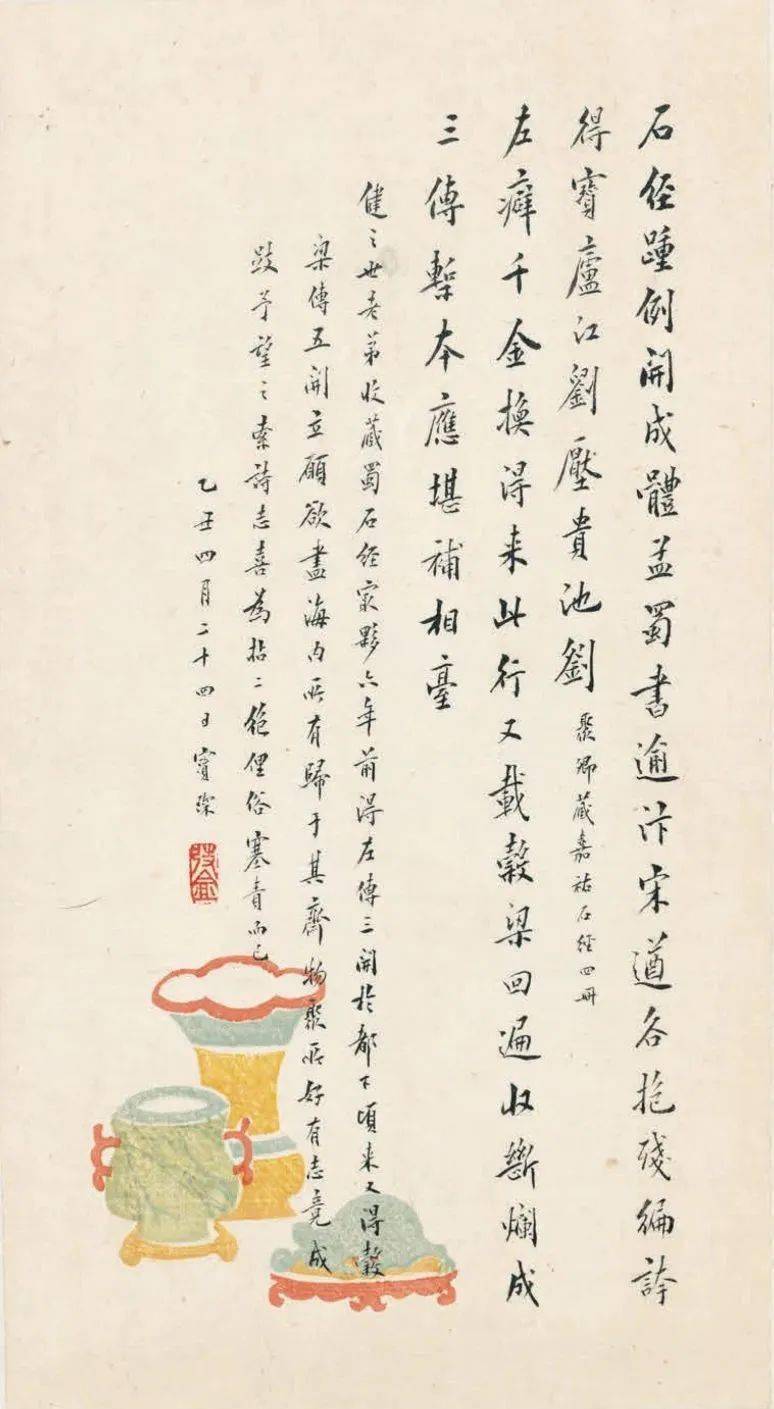 石經踵例開成體孟蜀書逾汴宋遒各抱殘編誇
得寶廬江劉壓貴池劉聚卿藏嘉祐石經四冊
左癖千金換得來此行又載穀梁回遍收斷爛成
三傳槧本應堪補相臺
健之世老弟收藏蜀石經最夥六年前得左傳三開於都下頃來又得穀
梁傳五開立願欲盡海內所有歸于其齋物聚所好有志竟成
跂予望之索詩志喜為拈二絕俚俗塞責而已
乙丑四月二十四日寶琛